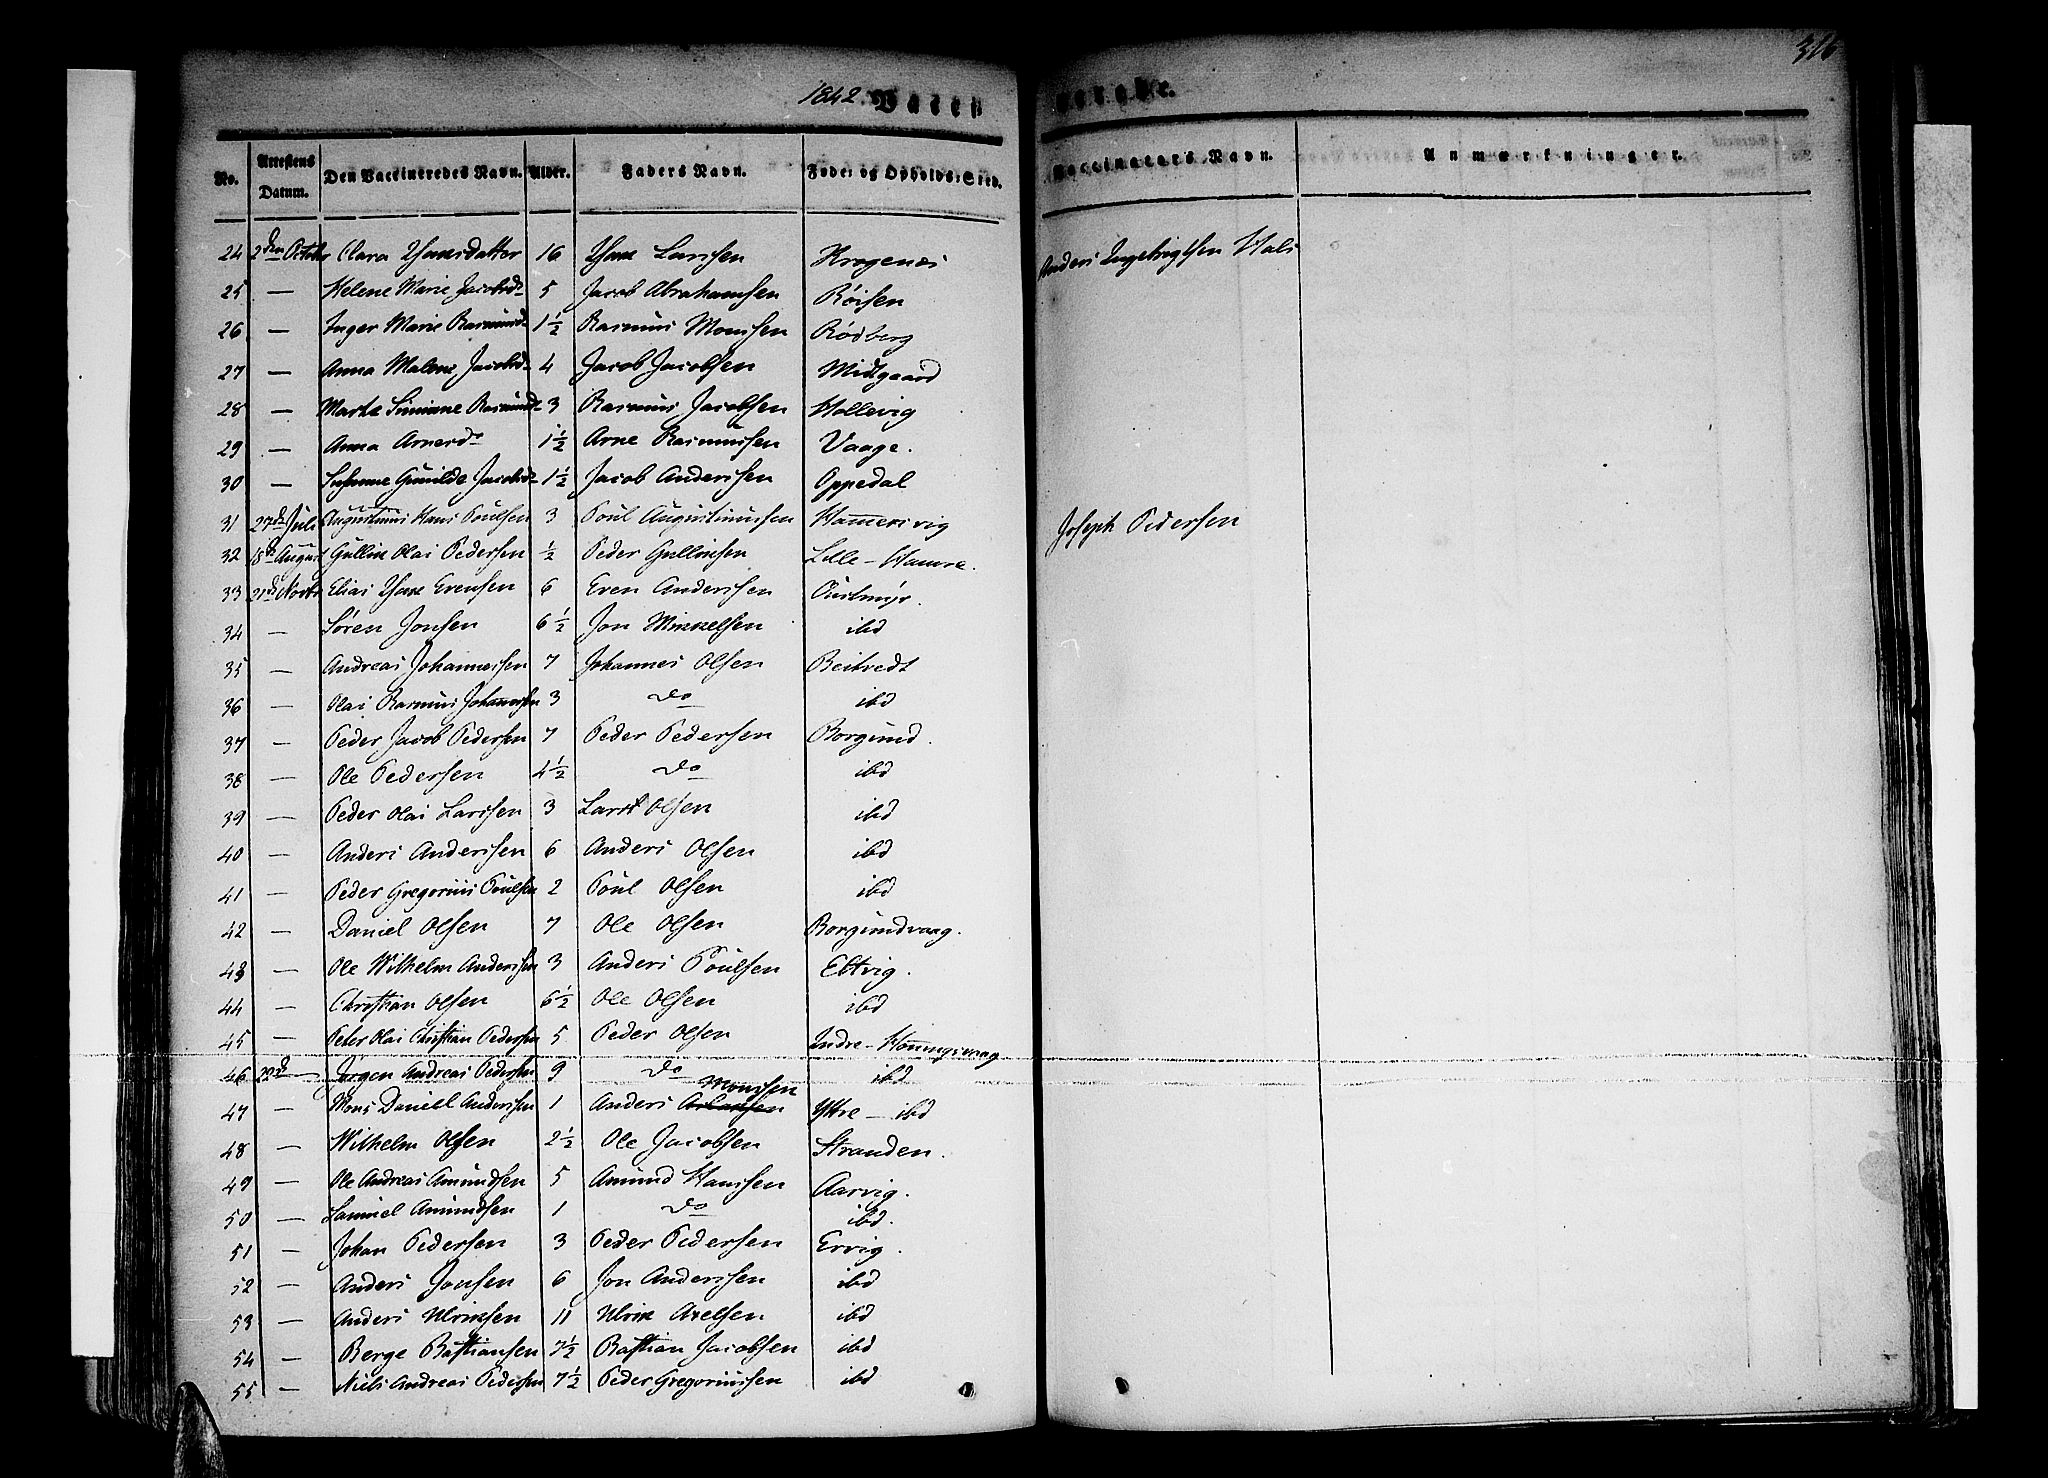 316
1842.
No. Attestens Datum. Den Vaccineredes Navn. Alder. Faders Navn. Føde- og Opholds-Sted. Vaccinateurs Navn. Anmærkninger.
24 2den Octobr Clara Thoresdatter 16 Thore Larssen Krogenæs Anders Ingebrigtsen Hals
25 — Helene Marie Jacobsdr 5 Jacob Abrahamsen Røisen
26 — Inger Marie Rasmusdr 1½ Rasmus Monssen Rødberg
27 — Anna Malene Jacobsd 4 Jacob Jacobsen Midtgaard
28 — Marte Rasmusd 3 Rasmus Jacobsen Hollevig
29 — Anna Arnesdr 1½ Arne Rasmussen Vaage.
30 — Susanne Gunilde Jacobsd 1½ Jacob Anderssen Oppedal
31 27de Juli Augustinus Hans Poulsen 3 Poul Augustinussen Hamersvig Joseph Pedersen
32 18de August Gullik Olai Pedersen ½ Peder Gulliksen Lille-Hamre.
33 21de Novbr Elias Thore Evensen 6 Even Anderssen
34 — Søren Jonsen 6½ Jon Mikkelsen ibd
35 — Andreas Johannessen 7 Johannes Olsen Beitvedt
36 — Olai Rasmus Johannessen 3 do ibd
37 — Peder Jacob Pedersen 7 Peder Pedersen Borgund.
38 — Ole Pedersen 4½ do ibd
39 — Peder Olai Larssen 3 Lars Olsen ibd
40 — Anders Anderssen 6 Anders Olsen ibd
41 — Peder Gregorius Poulsen 2 Poul Olsen ibd
42 — Daniel Olsen 7 Ole Olsen Borgundvaag.
43 — Ole Wilhelm Anderssen 3 Anders Poulsen Eltvig.
44 — Christian Olsen 6½ Ole Olsen ibd
45 — Peter Olai Christian Pedersen 5 Peder Olsen Indre-Honningsvaag
46 22de — Jørgen Andreas Pedersen 9 do ibd
47 — Mons Daniel Anderssen 1 Anders Monssen Ytre — ibd
48 — Wilhelm Olsen 2½ Ole Jacobsen Stranden.
49 — Ole Andreas Amundsen 5 Amund Hanssen Aarvig.
50 — Samuel Amundsen 1 do ibd.
51 — Johan Pedersen 3 Peder Pedersen Ervig.
52 — Anders Jonsen 6 Jon Anderssen ibd
53 — Anders Ulriksen 11 Ulrik Axelsen ibd
54 — Berge Bastiansen 7½ Bastian Jacobsen ibd
55 — Niels Andreas Pedersen 7½ Peder Gregoriussen ibd